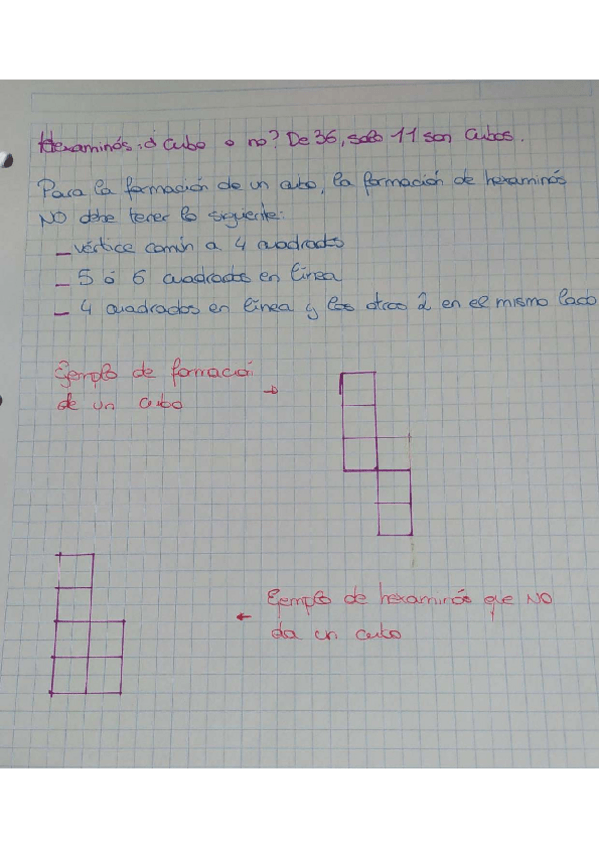 Hexaminós: ¿ cubo o no? De 36, solo 11 son cubos.
Para la formación de un cubo, la formación de hexaminós
NO debe tener lo siguiente:
– vértice común a 4 cuadrados
– 5 ó 6 cuadrados en línea
– 4 cuadrados en línea y los otros 2 en el mismo lado
Ejemplo de formació
de un cubo
Ejemplo de hexaminós que NO
da un cubo